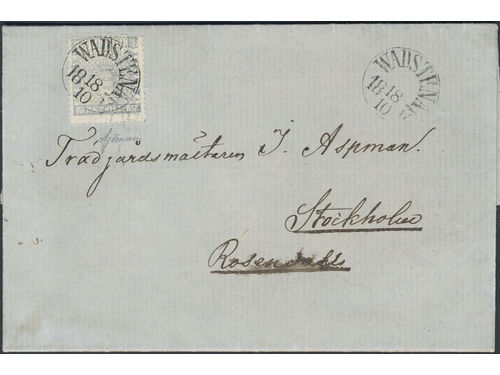 WADSTENA
18 18
10
WADSTENA
18 18
10
Trädgårdsmästaren J. Aspman.
Stockholm
Rosendahl